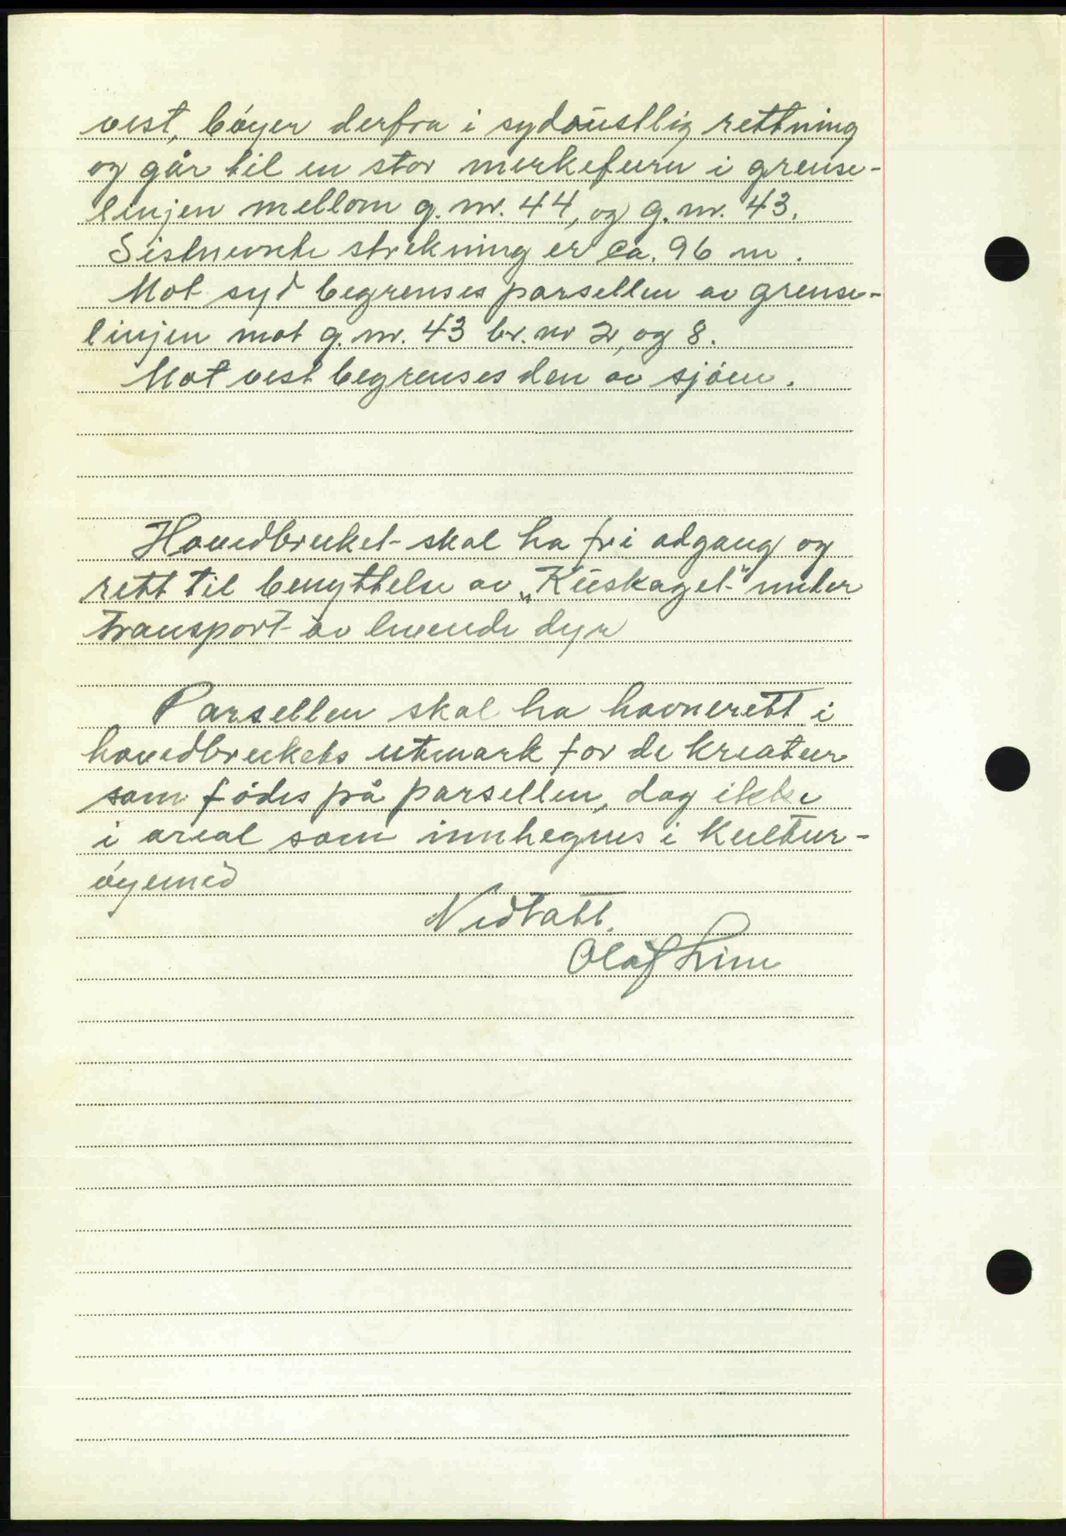 vest, bøyer derfra i sydøustlig rettning
og går til en stor merkefuru i grense-
linjen mellom g. nr. 44, og g. nr. 43.
Sistnevnte strekning er ca. 96 m.
Mot syd begrenses parsellen av grense-
linjen mot g. nr. 43 br. nr 2, og 8.
Mot vest begrenses den av sjøen.
Hovedbruket skal ha fri adgang og
rett til benyttelse av „Kuskaget" under
transport av levende dyr
Parsellen skal ha havnerett i
hovedbrukets utmark for de kreatur
som fødes på parsellen, dog ikke
i areal som innhegnes i kultur-
øyemed
Vedtatt.
Olaf Lien